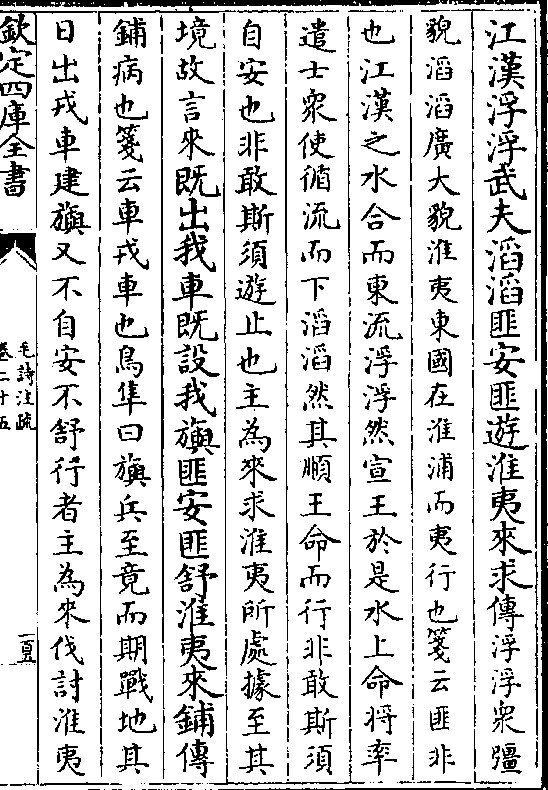 江漢浮浮武夫滔滔匪安匪遊淮夷來求傳浮浮衆彊
貌滔滔廣大貌淮夷東國在淮浦而夷行也箋云匪非
也江漢之水合而東流浮浮然宣王於是水上命將率
遣士衆使循流而下滔滔然其順王命而行非敢斯須
自安也非敢斯須遊止也主為來求淮夷所處據至其
境故言來既出我車既設我旟匪安匪舒淮夷來鋪傳
鋪病也箋云車戎車也鳥隼曰旟兵至竟而期戰地其
日出戎車建旟又不自安不舒行者主為來伐討淮夷
欽定四庫全書
毛詩注疏
卷二十五
一百五